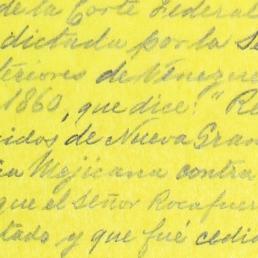 de la Corte Federal
dictada por la Se
teriores de Venezue
1860, que dice: "Re
cidos de Nueva Gran
ca Mejicana contra
que el Señor Rocafuer
tado y que fué cedi